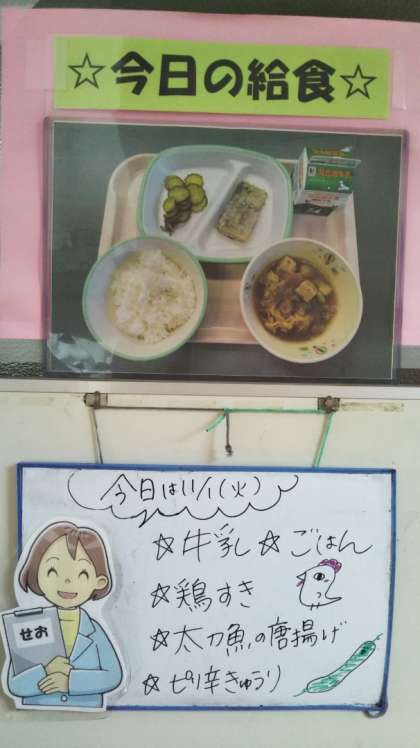 ☆今日の給食☆
今日は11/1(火)
☆牛乳 ☆ごはん
☆鶏すき
☆太刀魚の唐揚げ
☆ピリ辛きゅうり
せお